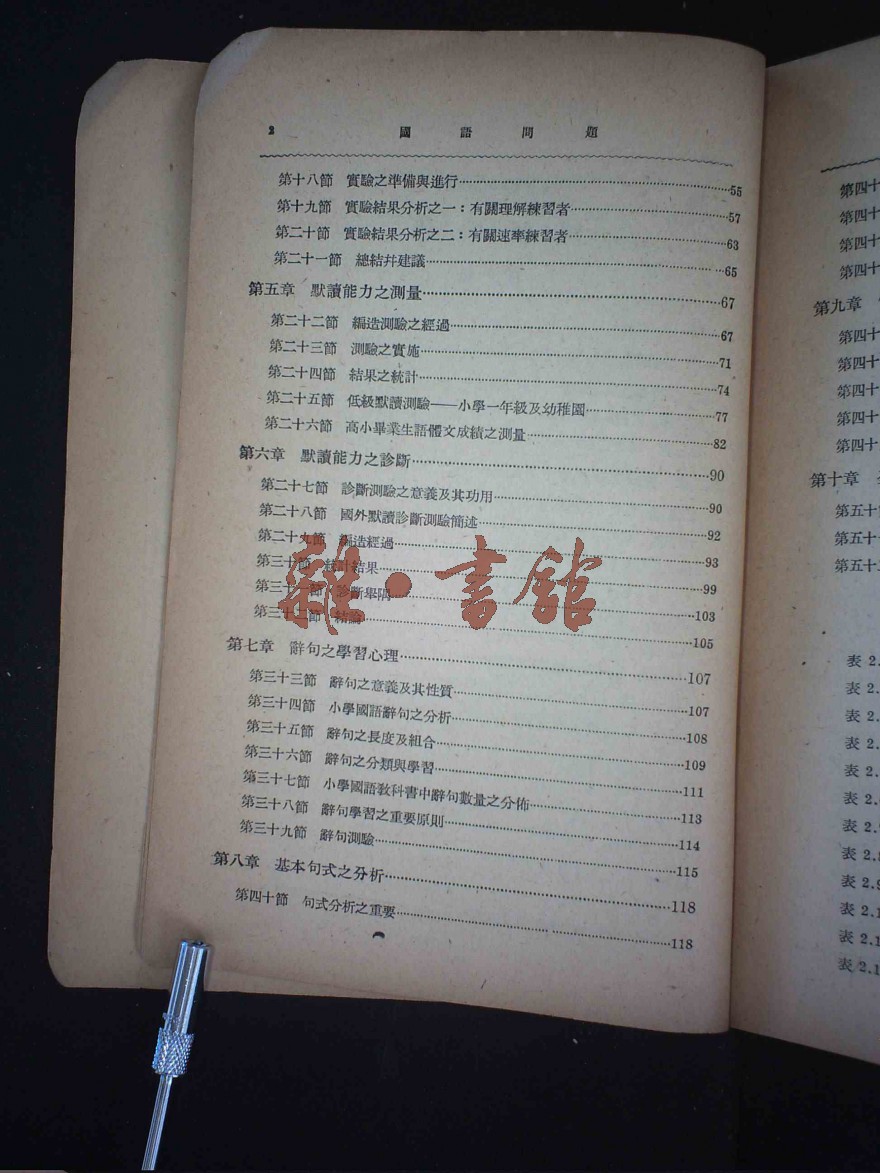 2 國語問題
第十八節 實驗之準備與進行……55
第十九節 實驗結果分析之一：有關理解練習者……57
第二十節 實驗結果分析之二：有關速率練習者……63
第二十一節 總結幷建議……65
第五章 默讀能力之測量……67
第二十二節 編造測驗之經過……67
第二十三節 測驗之實施……71
第二十四節 結果之統計……74
第二十五節 低級默讀測驗——小學一年級及幼稚園……77
第二十六節 高小畢業生語體文成績之測量……82
第六章 默讀能力之診斷……90
第二十七節 診斷測驗之意義及其功用……90
第二十八節 國外默讀診斷測驗簡述……92
第二十九節 編造經過……93
第三十節 統計結果……99
第三十一節 診斷舉隅……103
第三十二節 結論……105
雜·書館
第七章 辭句之學習心理……107
第三十三節 辭句之意義及其性質……107
第三十四節 小學國語辭句之分析……108
第三十五節 辭句之長度及組合……109
第三十六節 辭句之分類與學習……111
第三十七節 小學國語敎科書中辭句數量之分佈……113
第三十八節 辭句學習之重要原則……114
第三十九節 辭句測驗……115
第八章 基本句式之分析……118
第四十節 句式分析之重要……118
第四十
第四十
第四十
第四十
第九章
第四十
第四十
第四十
第四十
第四十
第十章
第五十
第五十
第五十
表 2.
表 2.
表 2.
表 2.
表 2.
表 2.
表 2.
表 2.
表 2.9
表 2.1
表 2.1
表 2.1